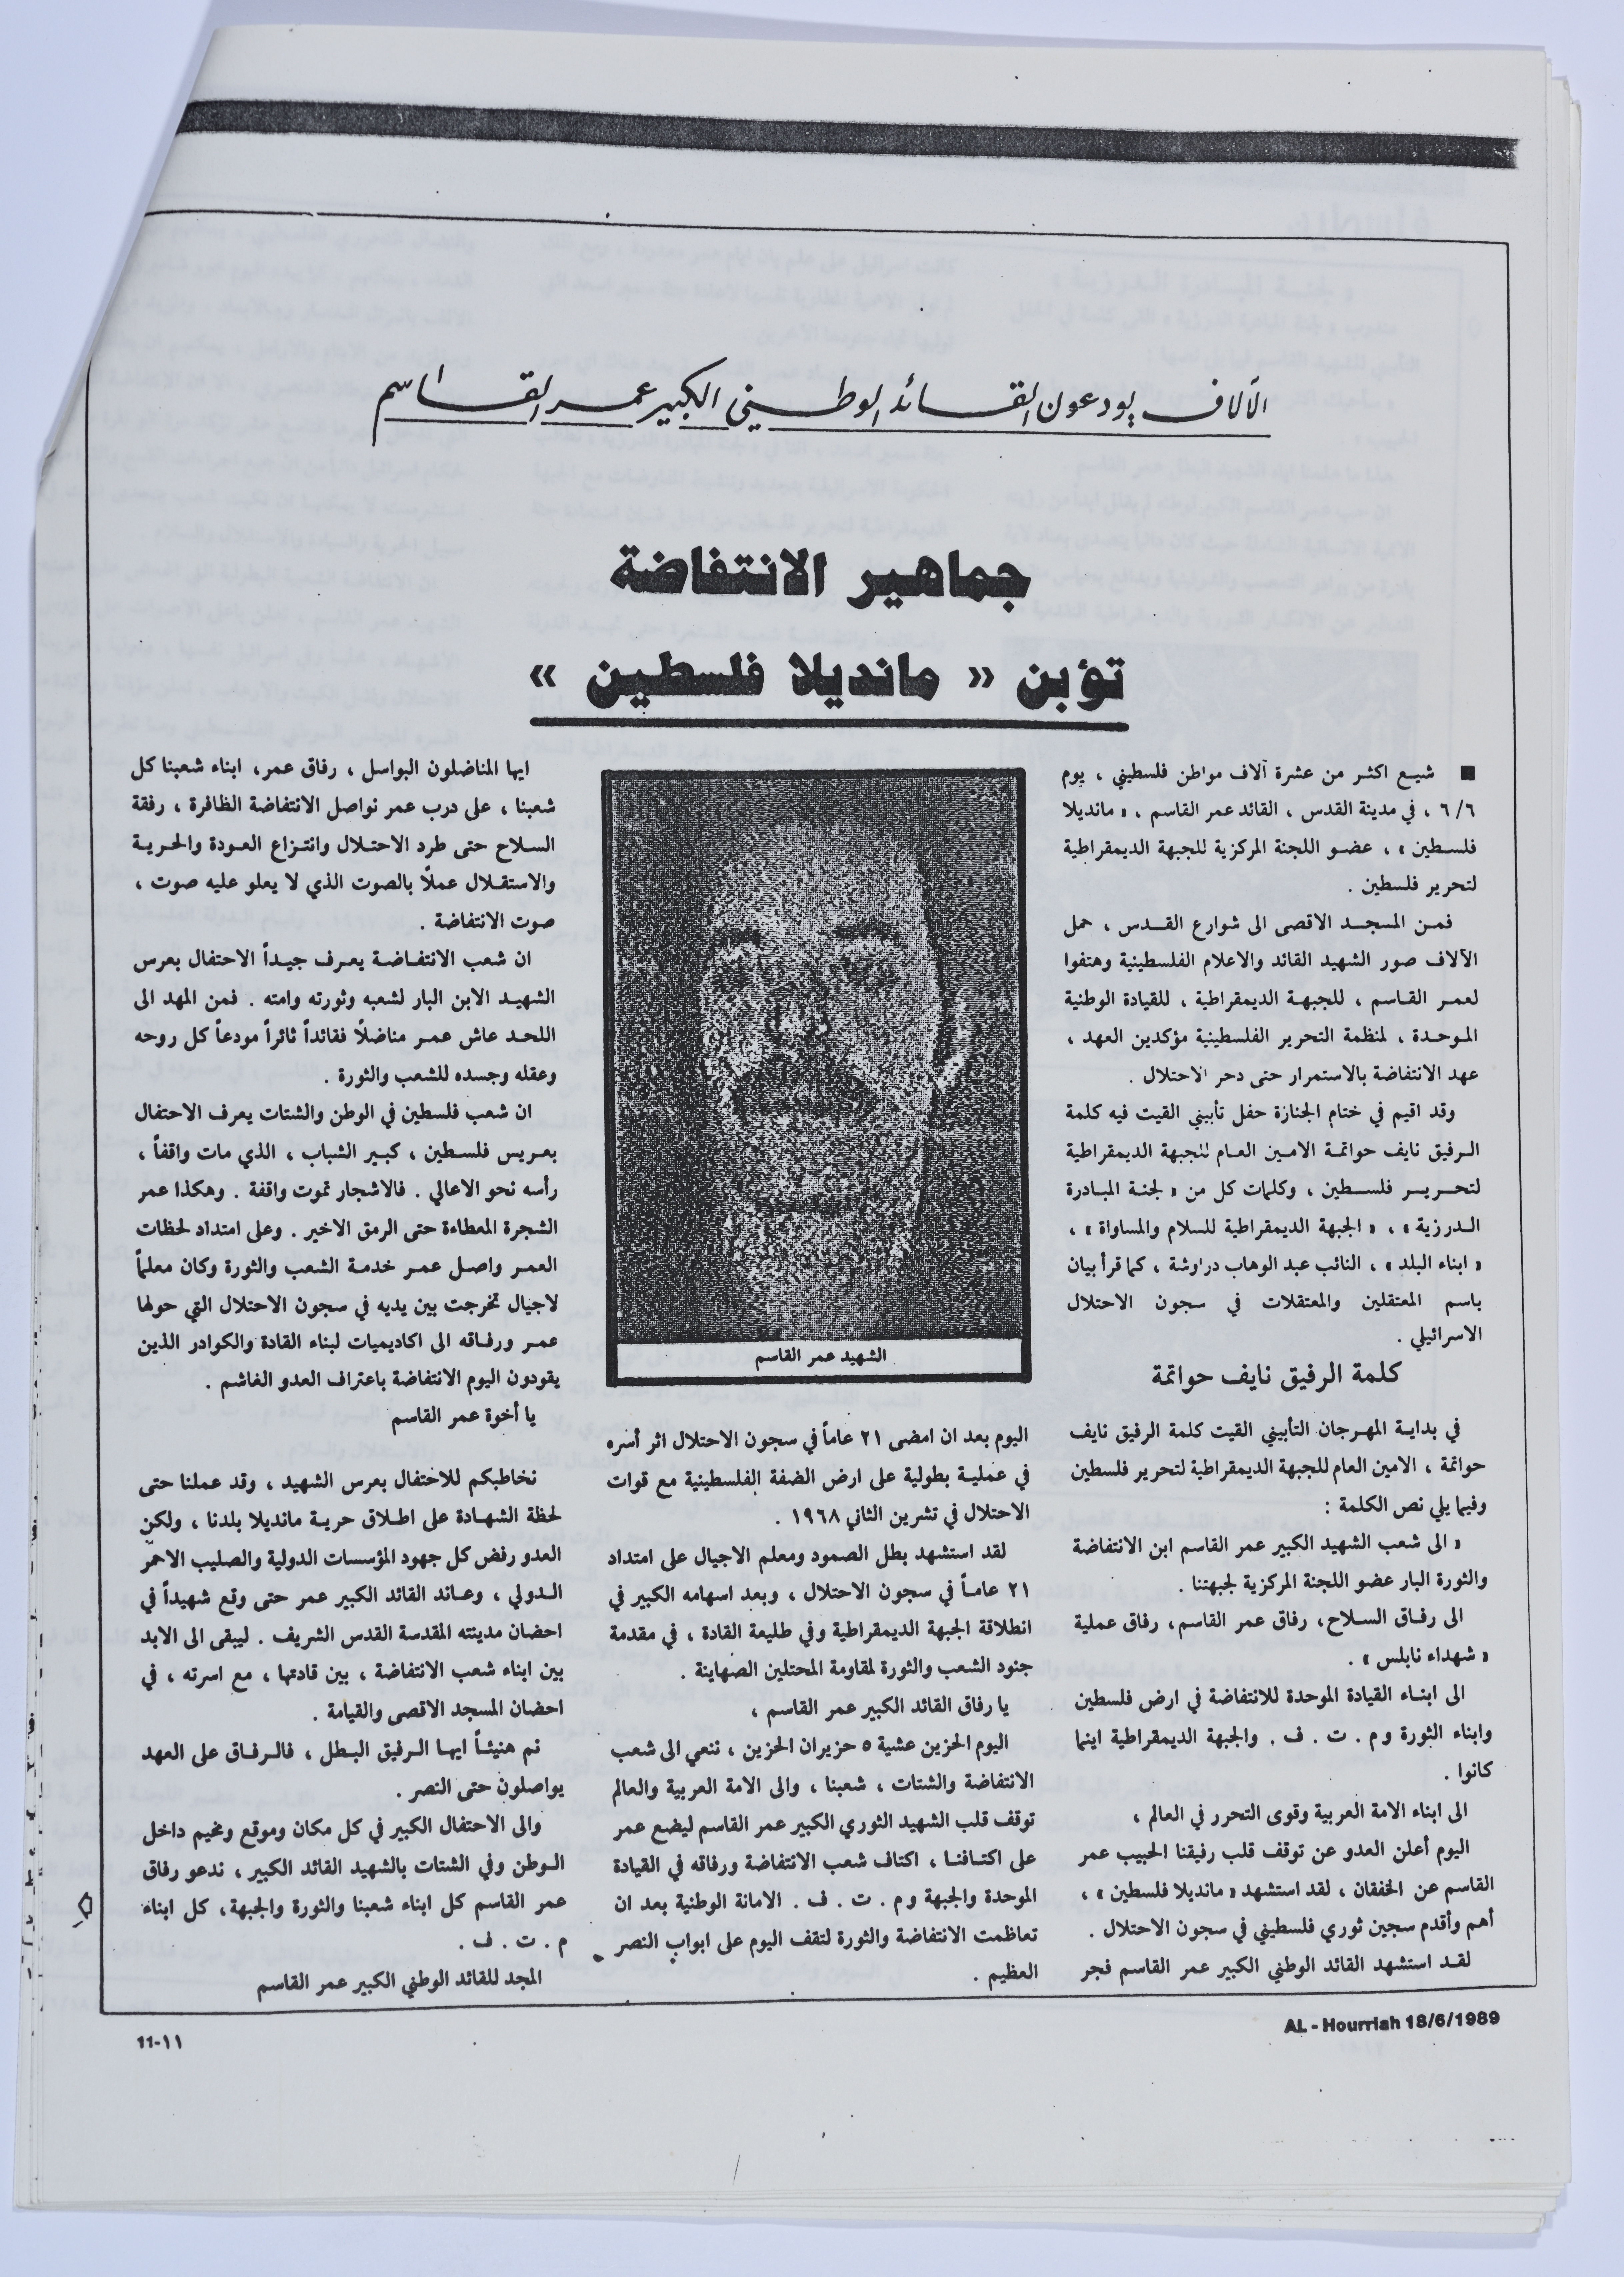 الآلاف يودعون القائد الوطني الكبير عمر القاسم
جماهير الانتفاضة
تؤبن « مانديلا فلسطين »
■ شيع اكثر من عشرة آلاف مواطن فلسطيني ، يوم
٦/٦ ، في مدينة القدس ، القائد عمر القاسم ، « مانديلا
فلسطين » ، عضو اللجنة المركزية للجبهة الديمقراطية
لتحرير فلسطين .
فمن المسجد الاقصى الى شوارع القدس ، حمل
الآلاف صور الشهيد القائد والاعلام الفلسطينية وهتفوا
لعمر القاسم ، للجبهة الديمقراطية ، للقيادة الوطنية
الموحدة ، لمنظمة التحرير الفلسطينية مؤكدين العهد ،
عهد الانتفاضة بالاستمرار حتى دحر الاحتلال .
وقد اقيم في ختام الجنازة حفل تأبيني القيت فيه كلمة
الرفيق نايف حواتمة الامين العام للجبهة الديمقراطية
لتحرير فلسطين ، وكلمات كل من « لجنة المبادرة
الدرزية » ، « الجبهة الديمقراطية للسلام والمساواة » ،
« ابناء البلد » ، النائب عبد الوهاب دراوشة ، كما قرأ بيان
باسم المعتقلين والمعتقلات في سجون الاحتلال
الاسرائيلي .
كلمة الرفيق نايف حواتمة
في بداية المهرجان التأبيني القيت كلمة الرفيق نايف
حواتمة ، الامين العام للجبهة الديمقراطية لتحرير فلسطين
وفيما يلي نص الكلمة :
« الى شعب الشهيد الكبير عمر القاسم ابن الانتفاضة
والثورة البار عضو اللجنة المركزية لجبهتنا .
الى رفاق السلاح، رفاق عمر القاسم، رفاق عملية
« شهداء نابلس » .
الى ابناء القيادة الموحدة للانتفاضة في ارض فلسطين
وابناء الثورة وم . ت . ف . والجبهة الديمقراطية اينما
كانوا .
الى ابناء الامة العربية وقوى التحرر في العالم ،
اليوم أعلن العدو عن توقف قلب رفيقنا الحبيب عمر
القاسم عن الخفقان ، لقد استشهد « مانديلا فلسطين » ،
أهم وأقدم سجين ثوري فلسطيني في سجون الاحتلال .
لقد استشهد القائد الوطني الكبير عمر القاسم فجر
الشهيد عمر القاسم
اليوم بعد ان امضى ٢١ عاماً في سجون الاحتلال اثر أسره
في عملية بطولية على ارض الضفة الفلسطينية مع قوات
الاحتلال في تشرين الثاني ١٩٦٨ .
لقد استشهد بطل الصمود ومعلم الاجيال على امتداد
٢١ عاماً في سجون الاحتلال ، وبعد اسهامه الكبير في
انطلاقة الجبهة الديمقراطية وفي طليعة القادة ، في مقدمة
جنود الشعب والثورة لمقاومة المحتلين الصهاينة .
يا رفاق القائد الكبير عمر القاسم ،
اليوم الحزين عشية ٥ حزيران الحزين ، ننعي الى شعب
الانتفاضة والشتات ، شعبنا ، والى الامة العربية والعالم
توقف قلب الشهيد الثوري الكبير عمر القاسم ليضع عمر
على اكتافنا ، اكتاف شعب الانتفاضة ورفاقه في القيادة
الموحدة والجبهة وم . ت . ف . الامانة الوطنية بعد ان
تعاظمت الانتفاضة والثورة لتقف اليوم على ابواب النصر
العظيم .
ايها المناضلون البواسل ، رفاق عمر، ابناء شعبنا كل
شعبنا ، على درب عمر نواصل الانتفاضة الظافرة ، رفقة
السلاح حتى طرد الاحتلال وانتزاع العودة والحرية
والاستقلال عملاً بالصوت الذي لا يعلو عليه صوت ،
صوت الانتفاضة .
ان شعب الانتفاضة يعرف جيداً الاحتفال بعرس
الشهيد الابن البار لشعبه وثورته وامته . فمن المهد الى
اللحد عاش عمر مناضلاً فقائداً ثائراً مودعاً كل روحه
وعقله وجسده للشعب والثورة .
ان شعب فلسطين في الوطن والشتات يعرف الاحتفال
بعريس فلسطين ، كبير الشباب ، الذي مات واقفاً ،
رأسه نحو الاعالي . فالاشجار تموت واقفة . وهكذا عمر
الشجرة المعطاءة حتى الرمق الاخير . وعلى امتداد لحظات
العمر واصل عمر خدمة الشعب والثورة وكان معلماً
لاجيال تخرجت بين يديه في سجون الاحتلال التي حولها
عمر ورفاقه الى اكاديميات لبناء القادة والكوادر الذين
يقودون اليوم الانتفاضة باعتراف العدو الغاشم .
يا أخوة عمر القاسم
نخاطبكم للاحتفال بعرس الشهيد ، وقد عملنا حتى
لحظة الشهادة على اطلاق حرية مانديلا بلدنا ، ولكن
العدو رفض كل جهود المؤسسات الدولية والصليب الاحمر
الدولي ، وعاند القائد الكبير عمر حتى وقع شهيداً في
احضان مدينته المقدسة القدس الشريف . ليبقى الى الابد
بين ابناء شعب الانتفاضة ، بين قادتها ، مع اسرته ، في
احضان المسجد الاقصى والقيامة .
نم هنيئاً ايها الرفيق البطل ، فالرفاق على العهد
يواصلون حتى النصر .
والى الاحتفال الكبير في كل مكان وموقع ومخيم داخل
الوطن وفي الشتات بالشهيد القائد الكبير ، ندعو رفاق
عمر القاسم كل ابناء شعبنا والثورة والجبهة، كل ابناء
م . ت . ف .
المجد للقائد الوطني الكبير عمر القاسم
AL - Hourriah 18/6/1989
11-١١